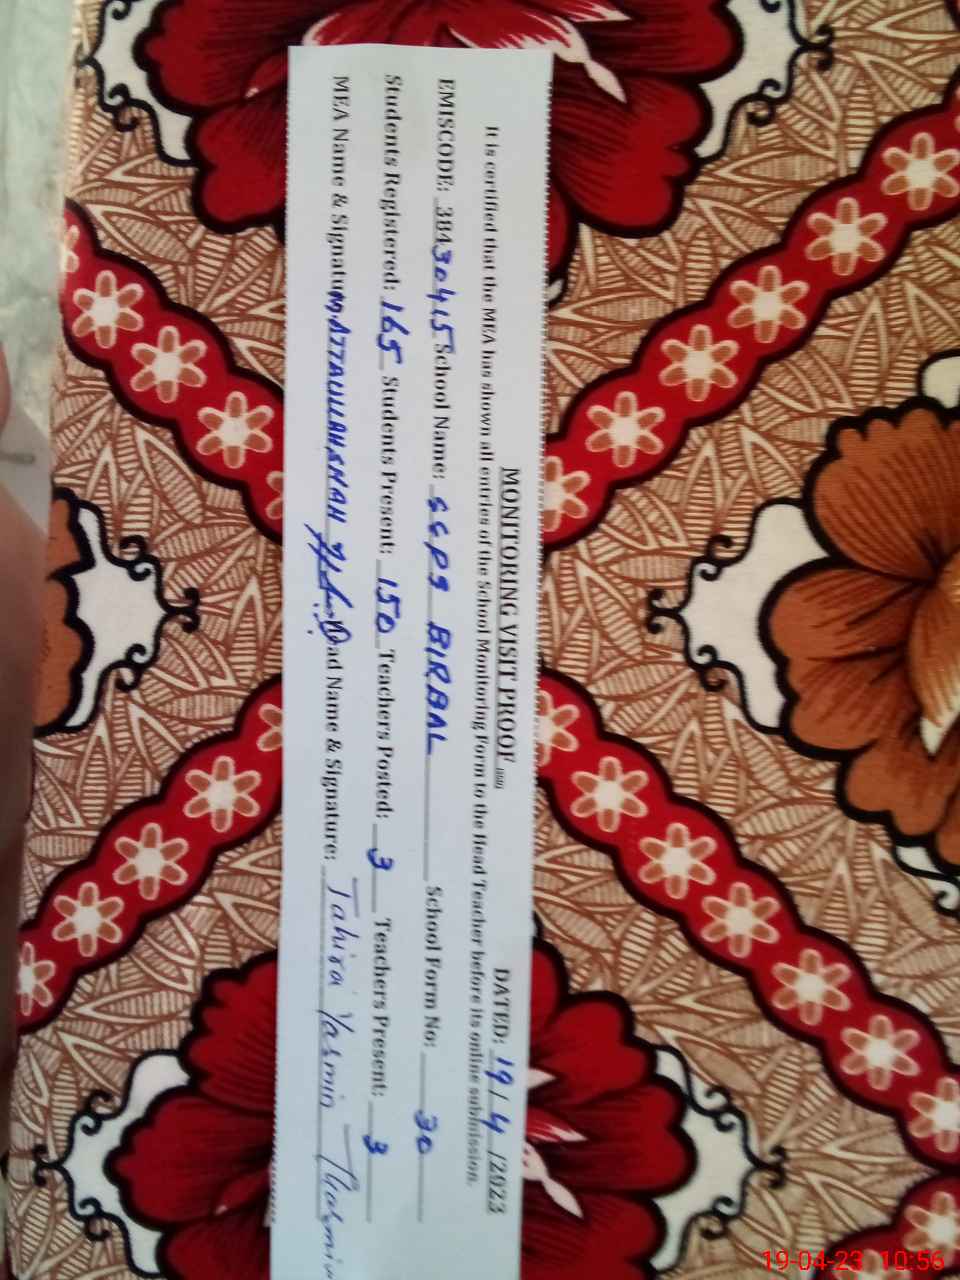 MONITORING VISIT PROOF DATED: 19/4/2023
It is certified that the MEA has shown all entries of the School Monitoring Form to the Head Teacher before its online submission.
EMISCODE: 38430415 School Name: GGPS BIRBAL School Form No: 30
Students Registered: 165 Students Present: 150 Teachers Posted: 3 Teachers Present: 3
MEA Name & Signatu M.ATTAULLAH SHAH ad Name & Signature: Tahira Yasmin
19-04-23 10:56